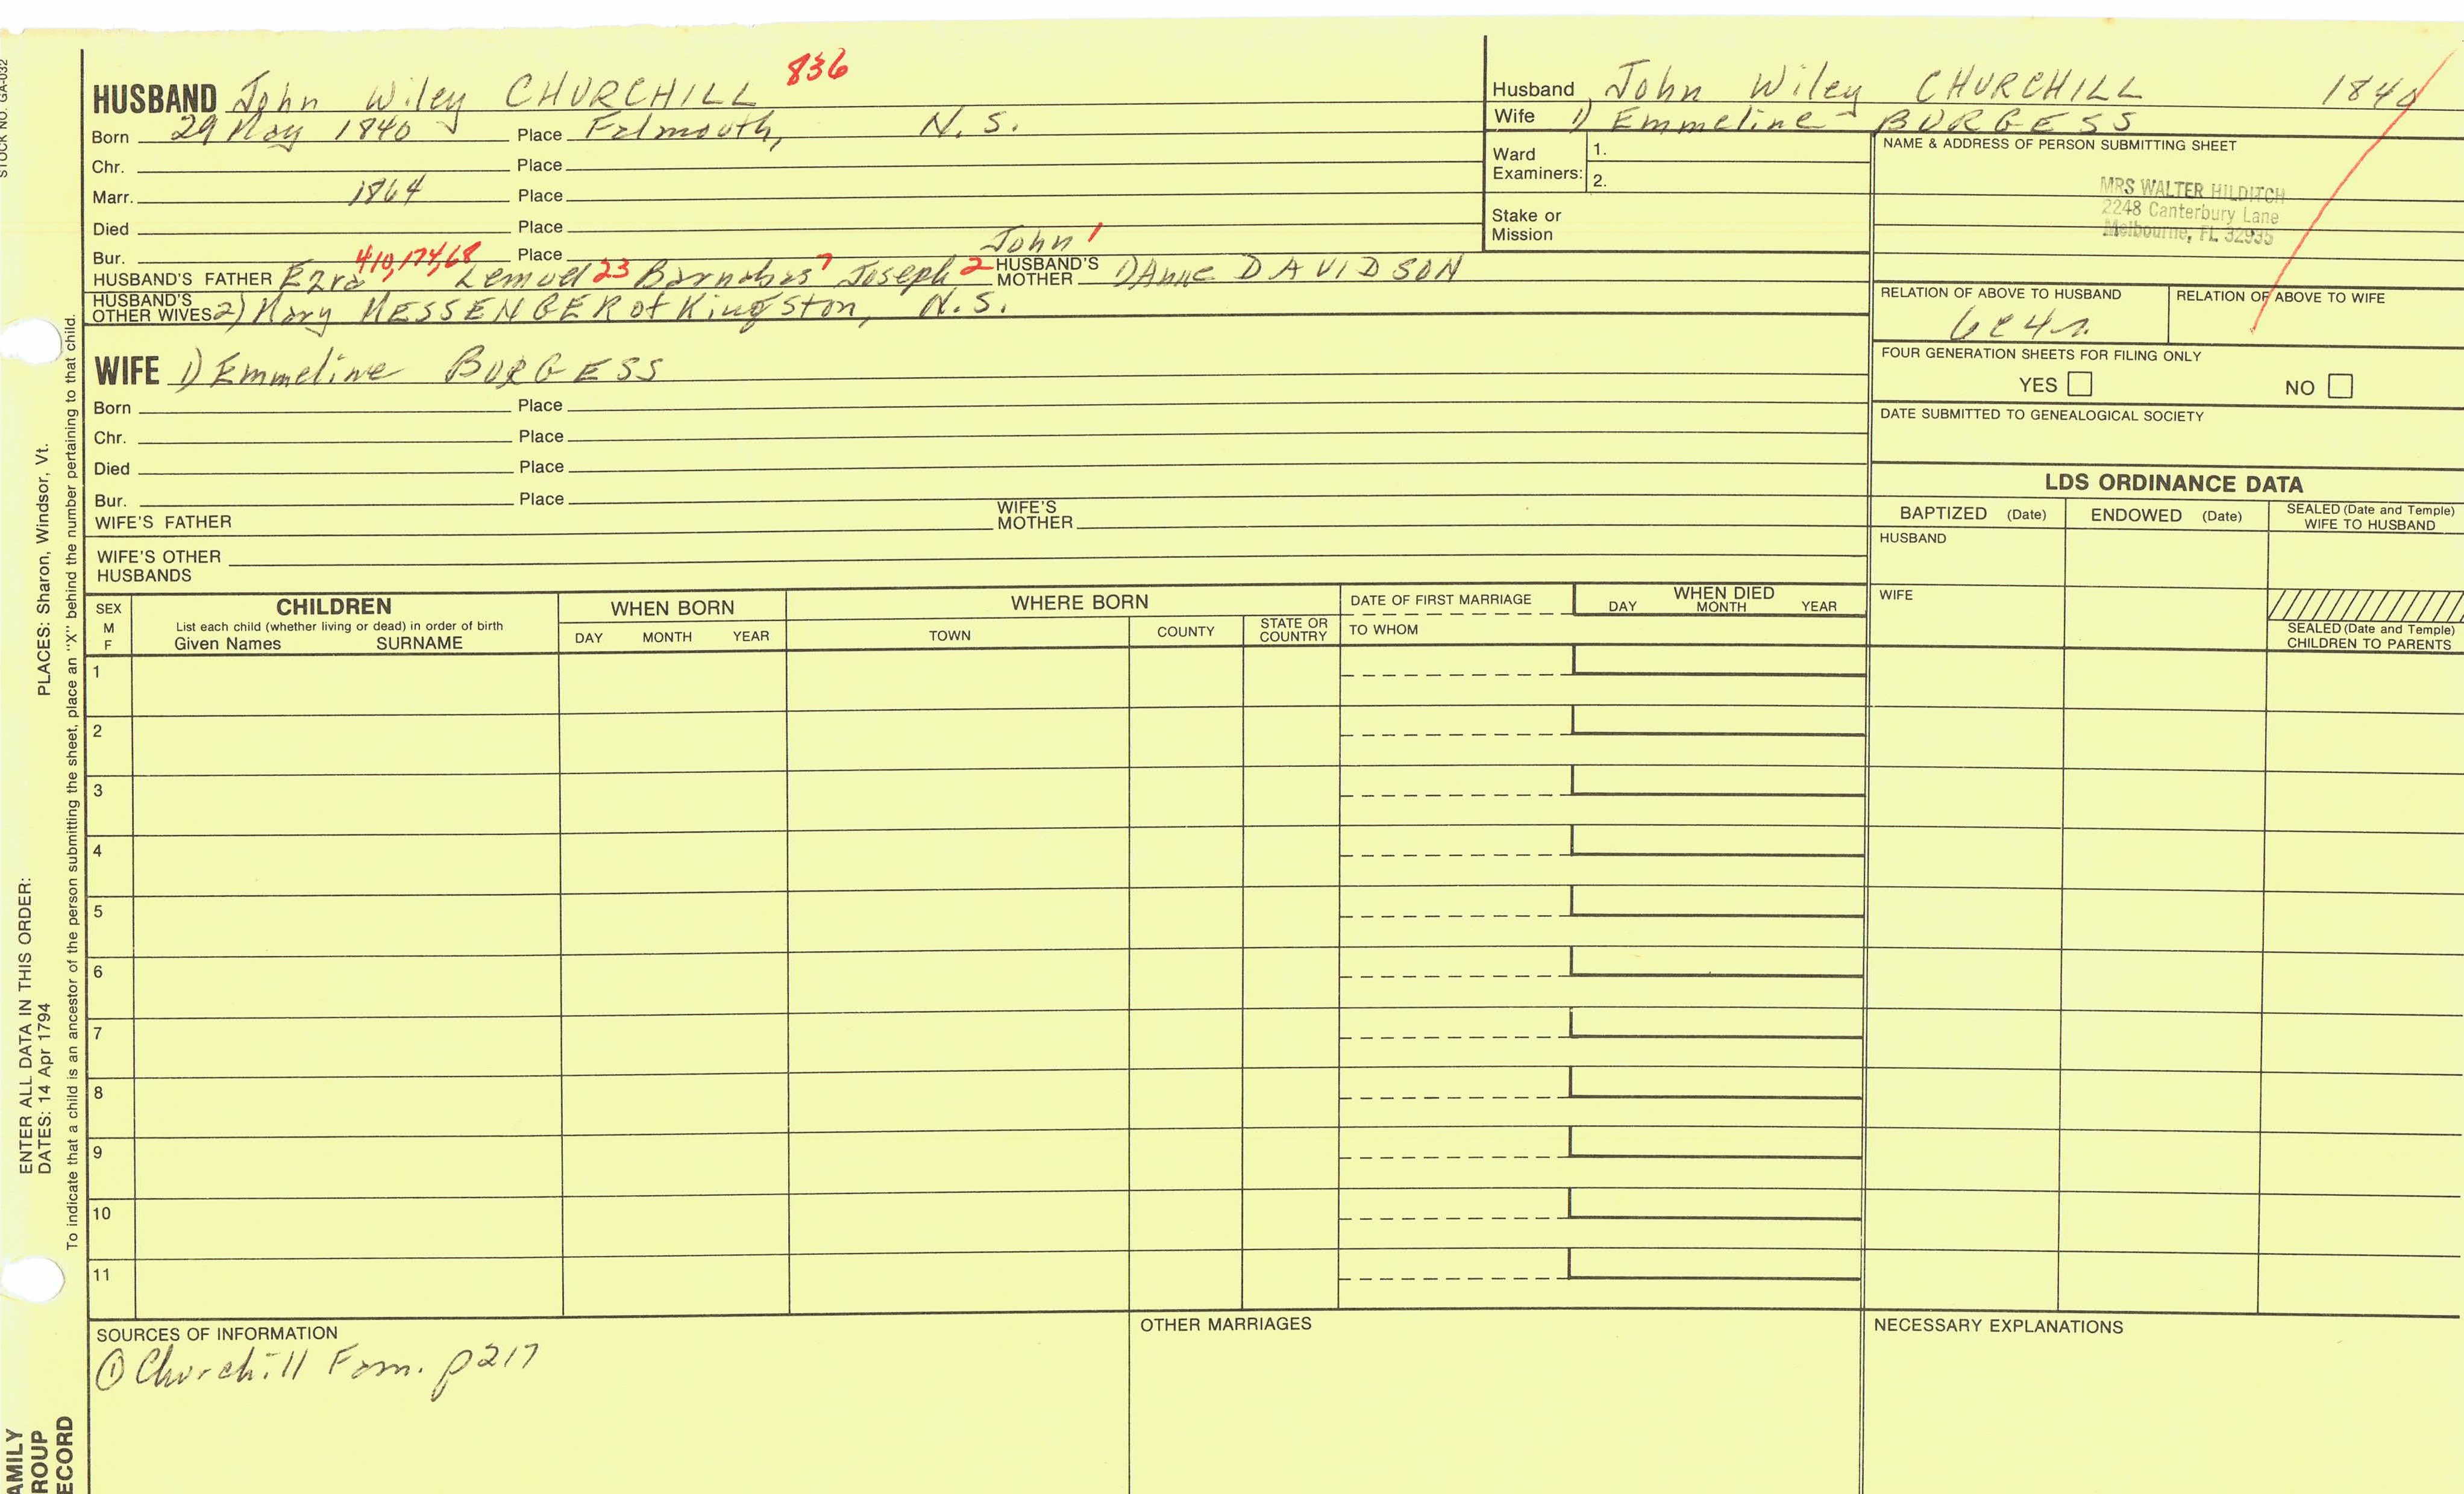 STOCK NO. GA-032
HUSBAND John Wiley CHURCHILL 836
Born 29 May 1840 Place Falmouth, N.S.
Chr. Place
Marr. 1864 Place
Died Place
Bur. Place
John 1
HUSBAND'S FATHER Ezra 410,174,68 Lemuel 23 Barnabas 7 Joseph 2 HUSBAND'S MOTHER 1) Anne DAVIDSON
HUSBAND'S OTHER WIVES 2) Mary MESSENGER of Kingston, N.S.
WIFE 1) Emmeline BURGESS
Born Place
Chr. Place
Died Place
Bur. Place
WIFE'S FATHER WIFE'S MOTHER
WIFE'S OTHER HUSBANDS
Husband John Wiley CHURCHILL 1840
Wife 1) Emmeline BURGESS
Ward Examiners: 1.
2.
Stake or Mission
NAME & ADDRESS OF PERSON SUBMITTING SHEET
MRS WALTER HILDITCH
2248 Canterbury Lane
Melbourne, FL 32935
RELATION OF ABOVE TO HUSBAND RELATION OF ABOVE TO WIFE
6c4r
FOUR GENERATION SHEETS FOR FILING ONLY
YES NO
DATE SUBMITTED TO GENEALOGICAL SOCIETY
LDS ORDINANCE DATA
BAPTIZED (Date) ENDOWED (Date) SEALED (Date and Temple) WIFE TO HUSBAND
HUSBAND
WIFE
SEALED (Date and Temple) CHILDREN TO PARENTS
SEX M F
CHILDREN
List each child (whether living or dead) in order of birth
Given Names SURNAME
WHEN BORN
DAY MONTH YEAR
WHERE BORN
TOWN COUNTY STATE OR COUNTRY
DATE OF FIRST MARRIAGE
TO WHOM
WHEN DIED
DAY MONTH YEAR
1
2
3
4
5
6
7
8
9
10
11
SOURCES OF INFORMATION
① Churchill Fam. p217
OTHER MARRIAGES
NECESSARY EXPLANATIONS
PLACES: Sharon, Windsor, Vt.
ENTER ALL DATA IN THIS ORDER:
DATES: 14 Apr 1794
To indicate that a child is an ancestor of the person submitting the sheet, place an "X" behind the number pertaining to that child.
AMILY
ROUP
ECORD